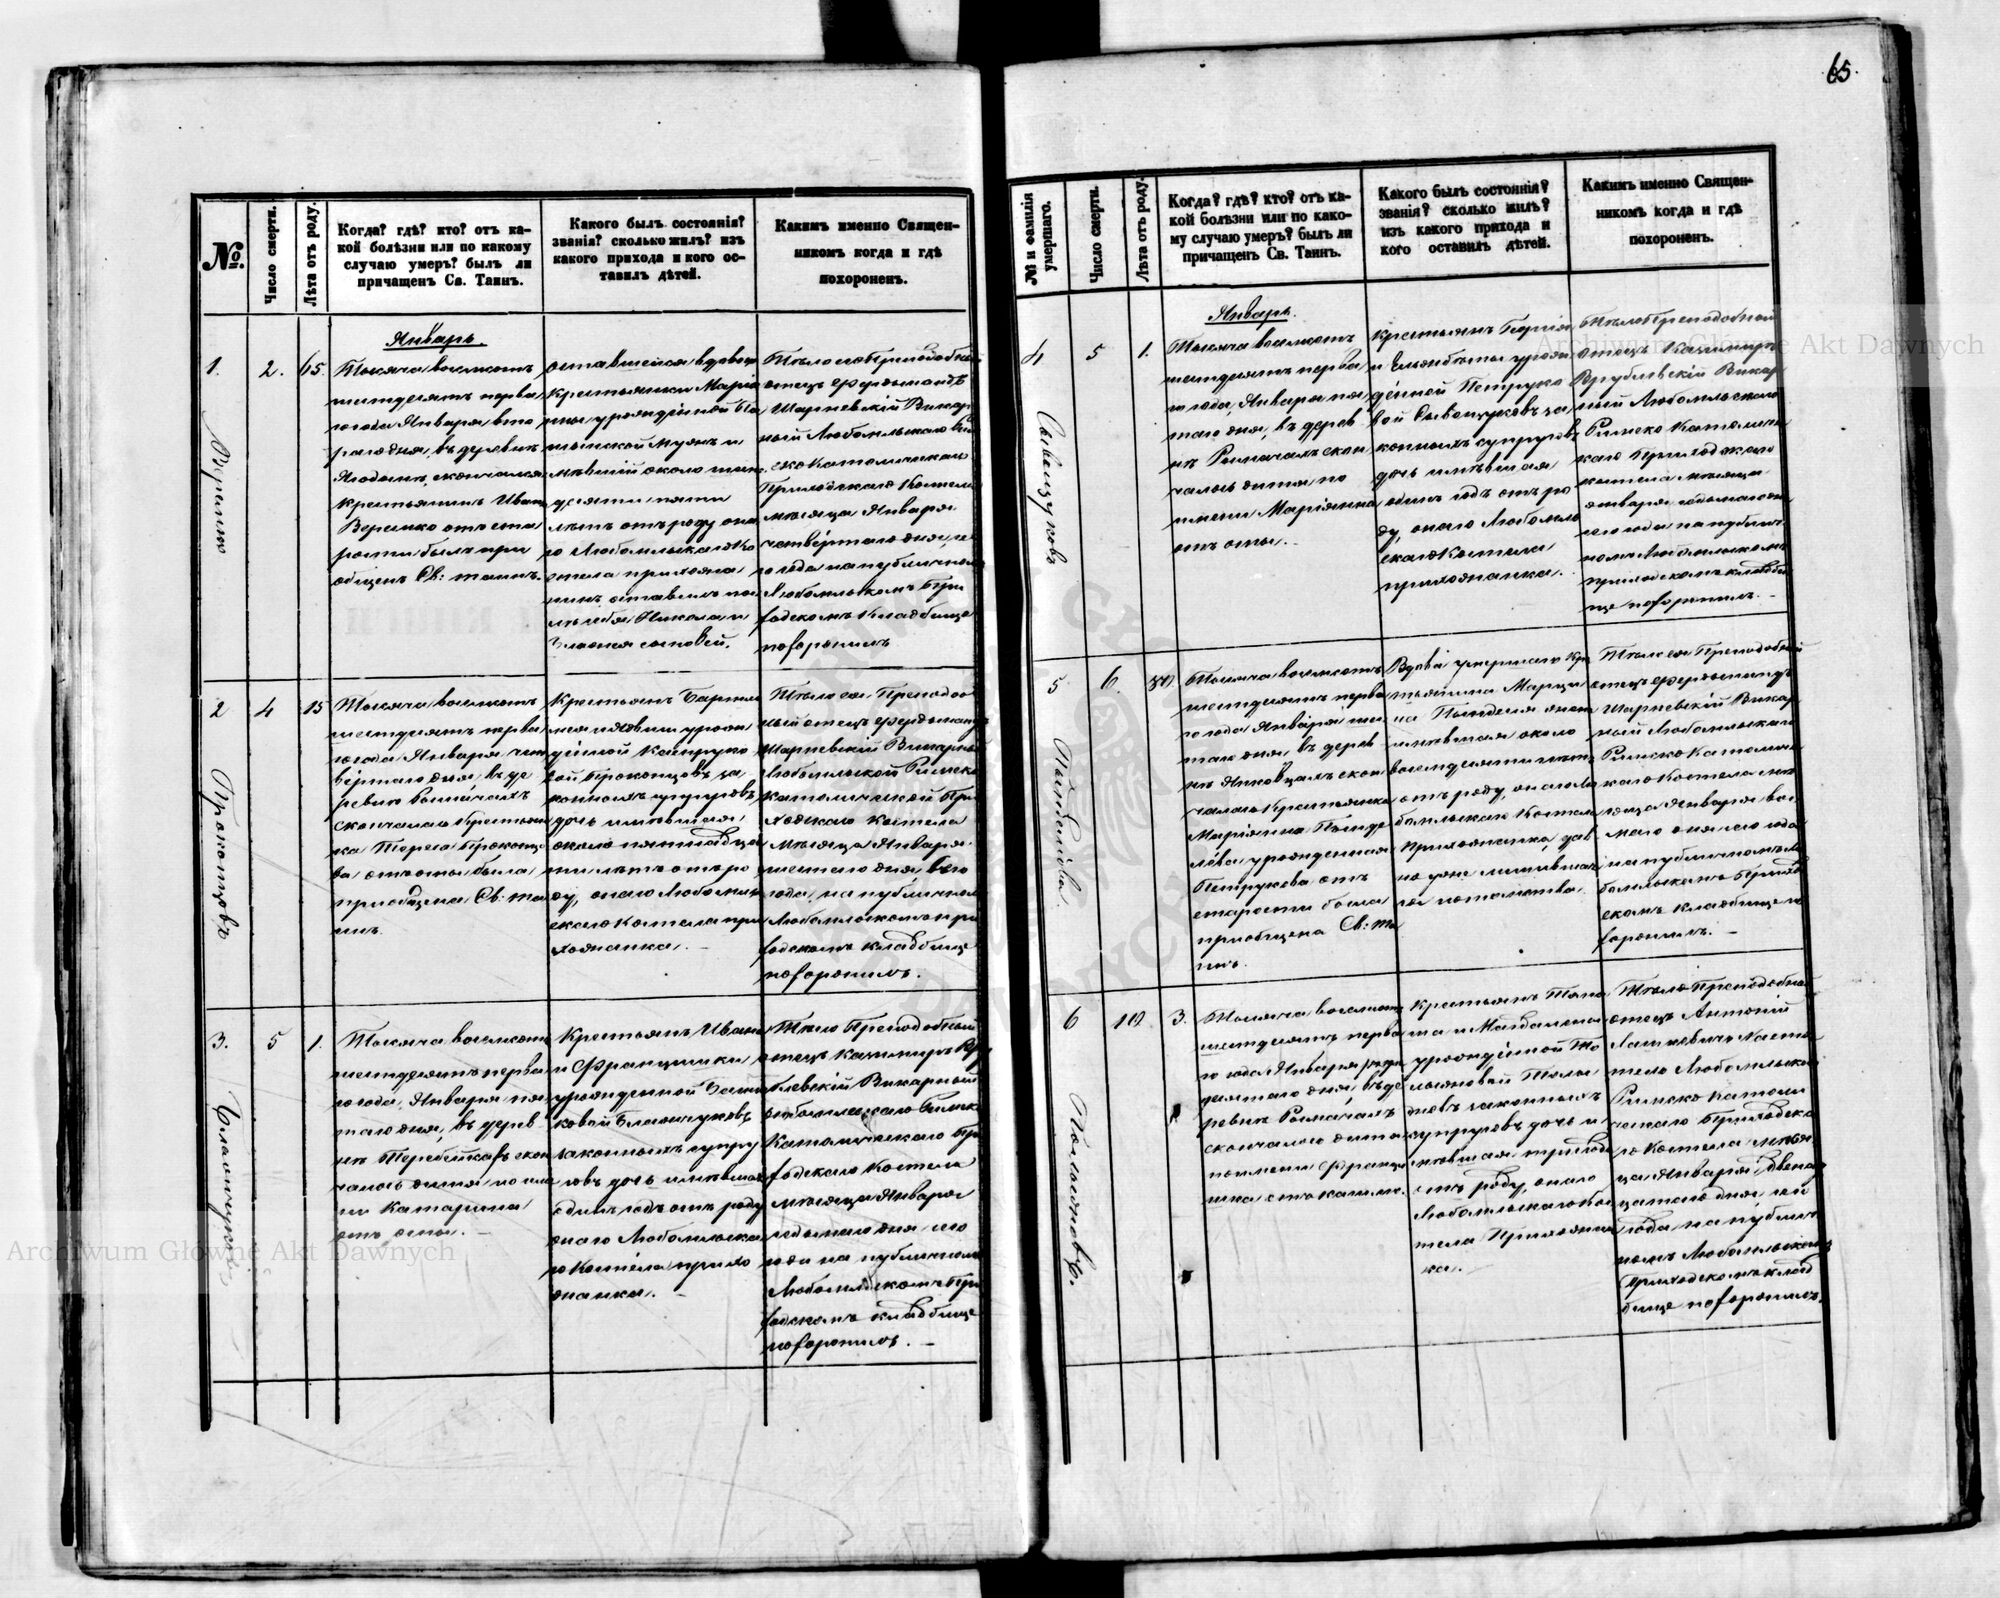 65.
№
Число смерти.
Лѣта отъ роду.
Когда? гдѣ? кто? отъ ка-
кой болѣзни или по какому
случаю умеръ? былъ ли
причащенъ Св. Таинъ.
Какого былъ состоянія?
званія? сколько жилъ? изъ
какого прихода и кого ос-
тавилъ дѣтей.
Какимъ именно Священ-
никомъ когда и гдѣ
похороненъ.
1.
Веремко
2.
65.
Январь.
Тысяча восемсотъ
шестдесятъ перва
го года Января вто
раго дня, въ деревнѣ
скончался
крестьянинъ Иванъ
Веремко отъ ста
рости былъ прі
общенъ Св: таинъ.
оставшейся вдовы
крестьянки Маріа
ны урожденной
мѣвшій около шест
десяти пяти
лѣтъ отъ роду она
го Любомльскаго Ко
стела прихожа
нинъ оставилъ по
слѣ себя Николая и
сыновей.
Тѣло его Преподобный
отецъ Фердынандъ
Шарневскій Викар
ный Любомльскаго Рим
ско Католическаго
Приходскаго Костела
мѣсяца Января
четвёртаго дня, се
го года на публичномъ
Любомльскомъ При
ходскомъ Кладбище
похоронилъ
2
Прокопцовъ
4
15
Тысяча восемсотъ
шестдесятъ перва
го года Января чет
вёртаго дня, въ де
ревнѣ Рымачахъ
скончалась Крестьян
ка Тереса Прокопцо
ва, отъ оспы была
пріобщена Св: та
инъ.
Крестьянъ Бартло
мея и Евы урож
дённой Кайтруко
вой Прокопцовъ за
конныхъ супруговъ
дочь имѣвшая
около пятнадца
ти лѣтъ отъ ро
ду, онаго Любомль
скаго Костела при
хожанка. -
Тѣло ея Преподоб
ный отецъ Фердынандъ
Шарневскій Викарный
Любомльской Римско
католической При
ходскаго костела
мѣсяца Января
шестаго дня, сего
года, на публичномъ
Любомльскомъ при
ходскомъ кладбище
похоронилъ.
3.
5
1.
Тысяча восемсотъ
шестдесятъ перва
го года, Января пя
таго дня, въ дерев
нѣ Теребейкахъ скон
чалось дитя, по име
ни Катарина
отъ оспы. -
Крестьянъ Ивана
и Францишки
урожденной
ковой
законныхъ супру
говъ дочь имѣвшая
одинъ годъ отъ роду
онаго Любомльска
го Костёла прихо
жанка. -
Тѣло Преподобный
отецъ Казимиръ Вру
блевскій Викарный
Любомльскаго Римско
Католическаго При
ходскаго Костела
мѣсяца Января
седьмаго дня сего
года на публичномъ
Любомльскомъ При
ходскомъ кладбище
похоронилъ. -
№ и фамилія
умершаго.
Число смерти.
Лѣта отъ роду.
Когда? гдѣ? кто? отъ ка-
кой болѣзни или по како-
му случаю умеръ? былъ ли
причащенъ Св. Таинъ.
Какого былъ состоянія?
званія? сколько жилъ?
изъ какого прихода и
кого оставилъ дѣтей.
Какимъ именно Священ-
никомъ когда и гдѣ
похороненъ.
4
5
1.
Январь.
Тысяча восемсотъ
шестдесятъ перва
го года, Января пя
таго дня, въ дерев
нѣ Рымачахъ скон
чалось дитя, по
имени Маріанна
отъ оспы. -
Крестьянъ Георгія
и Ельжбеты урож
дённой Петруко
вой за
конныхъ супруговъ
дочь имѣвшая
одинъ годъ отъ ро
ду, онаго Любомль
скаго Костела
прихожанка.
Тѣло Преподобный
отецъ Казимиръ
Врублевскій Викар
ный Любомльскаго
Римско Католичес
каго Приходскаго
костела мѣсяца
января седьмаго дня
сего года на публич
номъ Любомльскомъ
приходскомъ кладби
ще похоронилъ. -
5
6.
80.
Тысяча восемсотъ
шестдесятъ перва
го года Января шес
таго дня, въ дерев
нѣ скон
чалась Крестьянка
Маріанна Пынде
лёва урожденная
Петрукова отъ
старости была
пріобщена Св: та
инъ.
Вдова умершаго Кре
стьянина Марци
на Пынделя жена
имѣвшая около
восемдесяти лѣтъ
отъ роду, онаго Лю
бомльскаго Костела
прихожанка, дав
но уже лишившая
ся потомства.
Тѣло ея Преподобный
отецъ Фердынандъ
Шарневскій Викар
ный Любомльскаго
Римско Католичес
каго Костела мѣ
сяца Января вось
маго дня сего года
на публичномъ Лю
бомльскомъ Приход
скомъ кладбище по
хоронилъ. -
6
10
3.
Тысяча восемсотъ
шестдесятъ перва
го года Января
десятаго дня, въ де
ревнѣ Рымачахъ
скончалось дитя
по имени Францы
шка отъ кашля.
Крестьянъ
и Магдалены
урождённой
законныхъ
супруговъ дочь и
мѣвшая три года
отъ роду, онаго
Любомльскаго Ко
стела Прихожан
ка. -
Тѣло Преподобный
отецъ Антоній
Насто
тель Любомльскаго
Римско католи
ческаго Приходска
го Костела мѣся
ца Января двенад
цатаго дня, сего
года, на публич
номъ Любомльскомъ
Приходскомъ клад
бище похоронилъ.
Archiwum Główne Akt Dawnych
Archiwum Główne Akt Dawnych